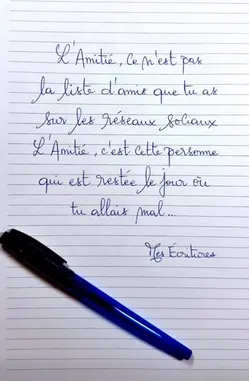 L'Amitié, ce n'est pas
la liste d'amis que tu as
sur les réseaux sociaux
L'Amitié, c'est cette personne
qui est restée le jour où
tu allais mal...
Mes Écritures